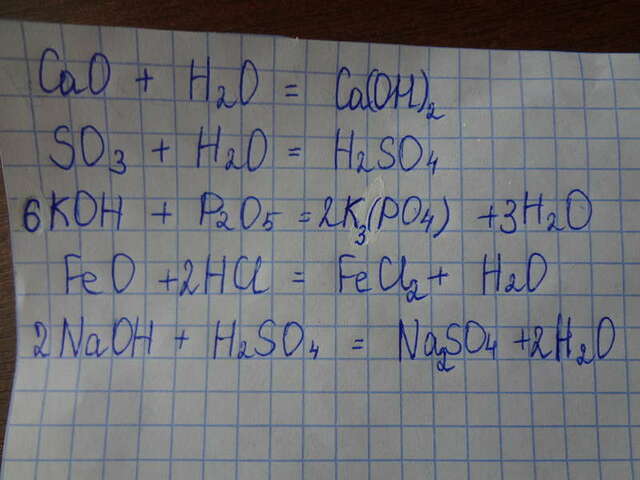 CaO + H₂O = Ca(OH)₂
SO₃ + H₂O = H₂SO₄
6KOH + P₂O₅ = 2K₃(PO₄) + 3H₂O
FeO + 2HCl = FeCl₂ + H₂O
2NaOH + H₂SO₄ = Na₂SO₄ + 2H₂O